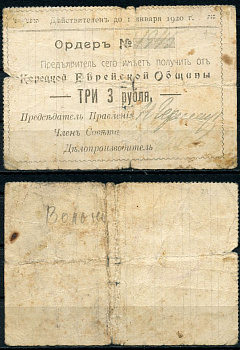 Действителенъ до 1 января 1920 г.
Ордеръ №
Предъявитель сего имѣетъ получить отъ
Еврейской Общины
— ТРИ 3 рубля, —
Предсѣдатель Правленія
Членъ Совѣта
Дѣлопроизводитель